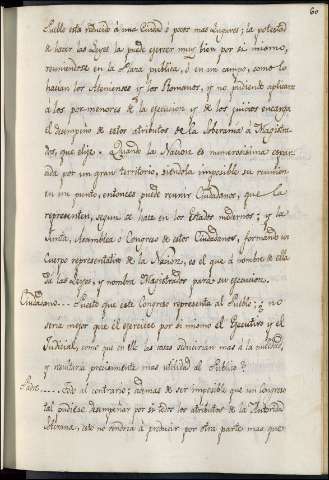 60
Pueblo está reducido á una Ciudad ó pocos mas Lugares; la potestad
de hacer las Leyes la puede exercer muy bien por si mismo,
reuniendose en la Plaza publica, ó en un campo, como lo
hacian los Atenienses y los Romanos, y no pudiendo aplicarse
á los por menores de la execucion y de los juicios encarga
el desempeño de estos atributos de la Soberania á Magistra-
dos, que elije. Quando la Nacion es numerosisima esparci-
ada por un gran territorio, siendola imposible su reunion
en un punto, entonces puede reunir Ciudadanos, que la
representen, segun se hace en los Estados modernos; y la
Junta, Asamblea ó Congreso de estos Ciudadanos, formando un
Cuerpo representativo de la Nacion, es el que á nombre de ella
da las Leyes, y nombra Magistrados para su execucion.
Ciudadano... Puesto que este Congreso representa al Pueblo; no
seria mejor que él exerciese por si mismo el Executivo y el
Judicial, como que en él las cosas reducirian mas á la unidad,
y resultaria precisamente mas utilidad al Publico?
Padre... Todo al contrario; ademas de ser imposible que un Congreso
tal pudiese desempeñar por si todos los atributos de la Autoridad
Soberana, esto vendria á producir por otra parte mas que